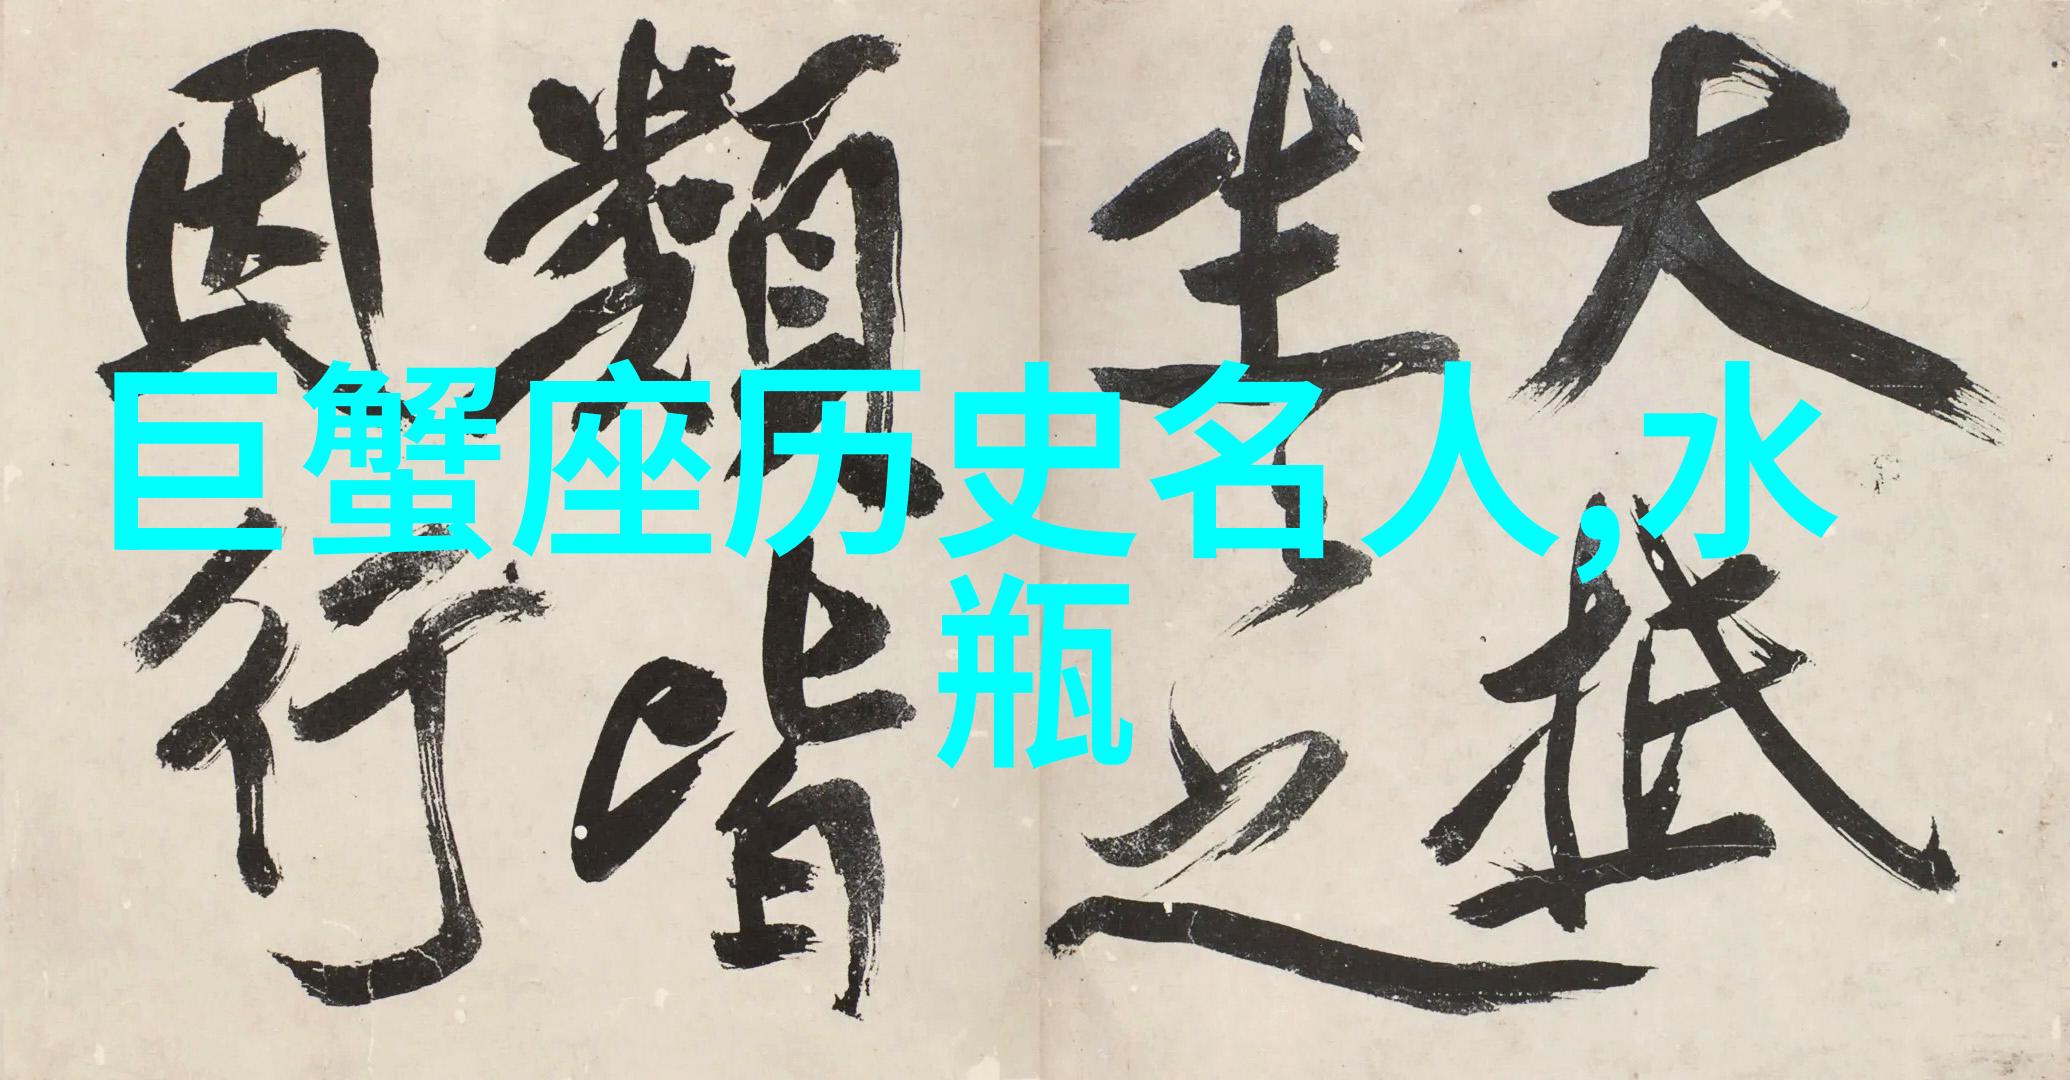 巨蟹座历史名人,水
瓶
大抵
生之
類皆
因行